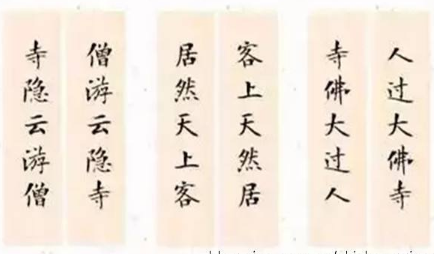 人过大佛寺
寺佛大过人
客上天然居
居然天上客
僧游云隐寺
寺隐云游僧